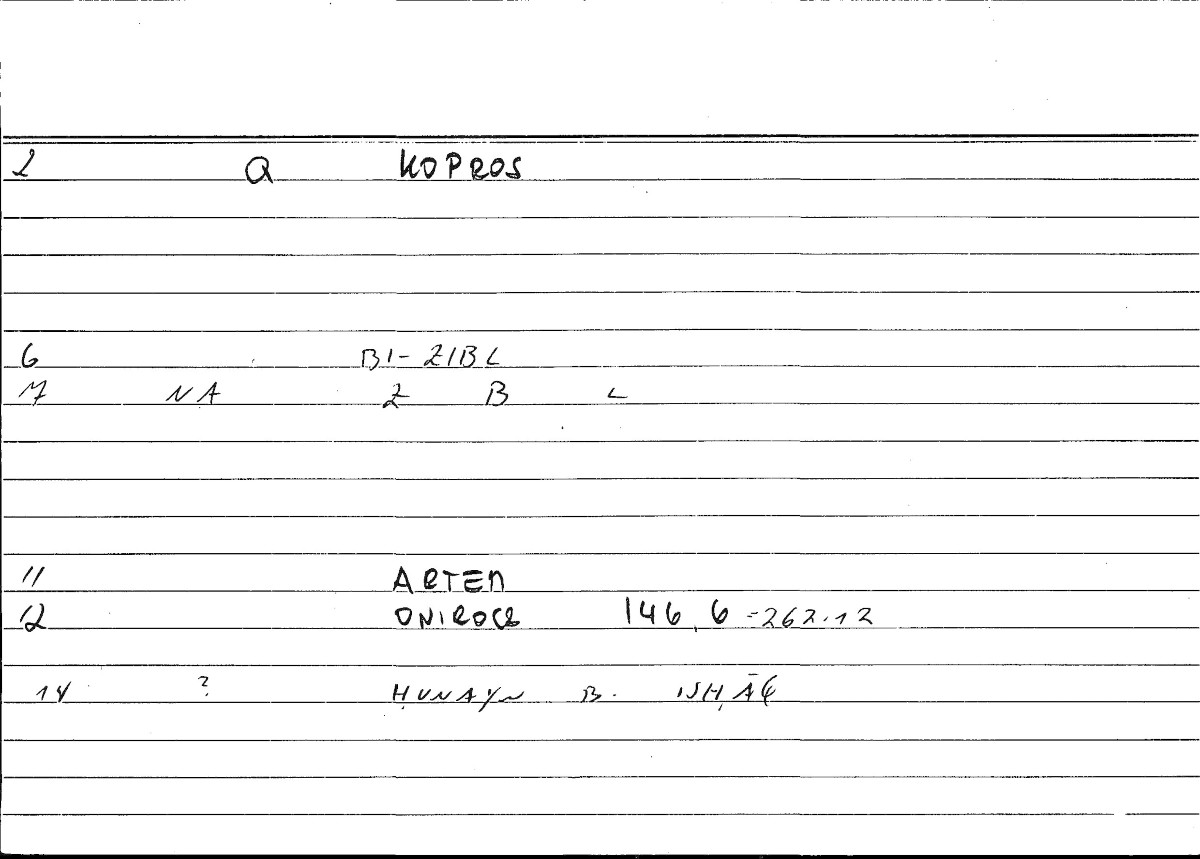 2 Q KOPROS
6 BI-ZIBL
7 NA Z B L
11 ARTEM
12 ONIROCR 146,6=262.12
14 ? ḤUNAYN B. ISḤĀQ